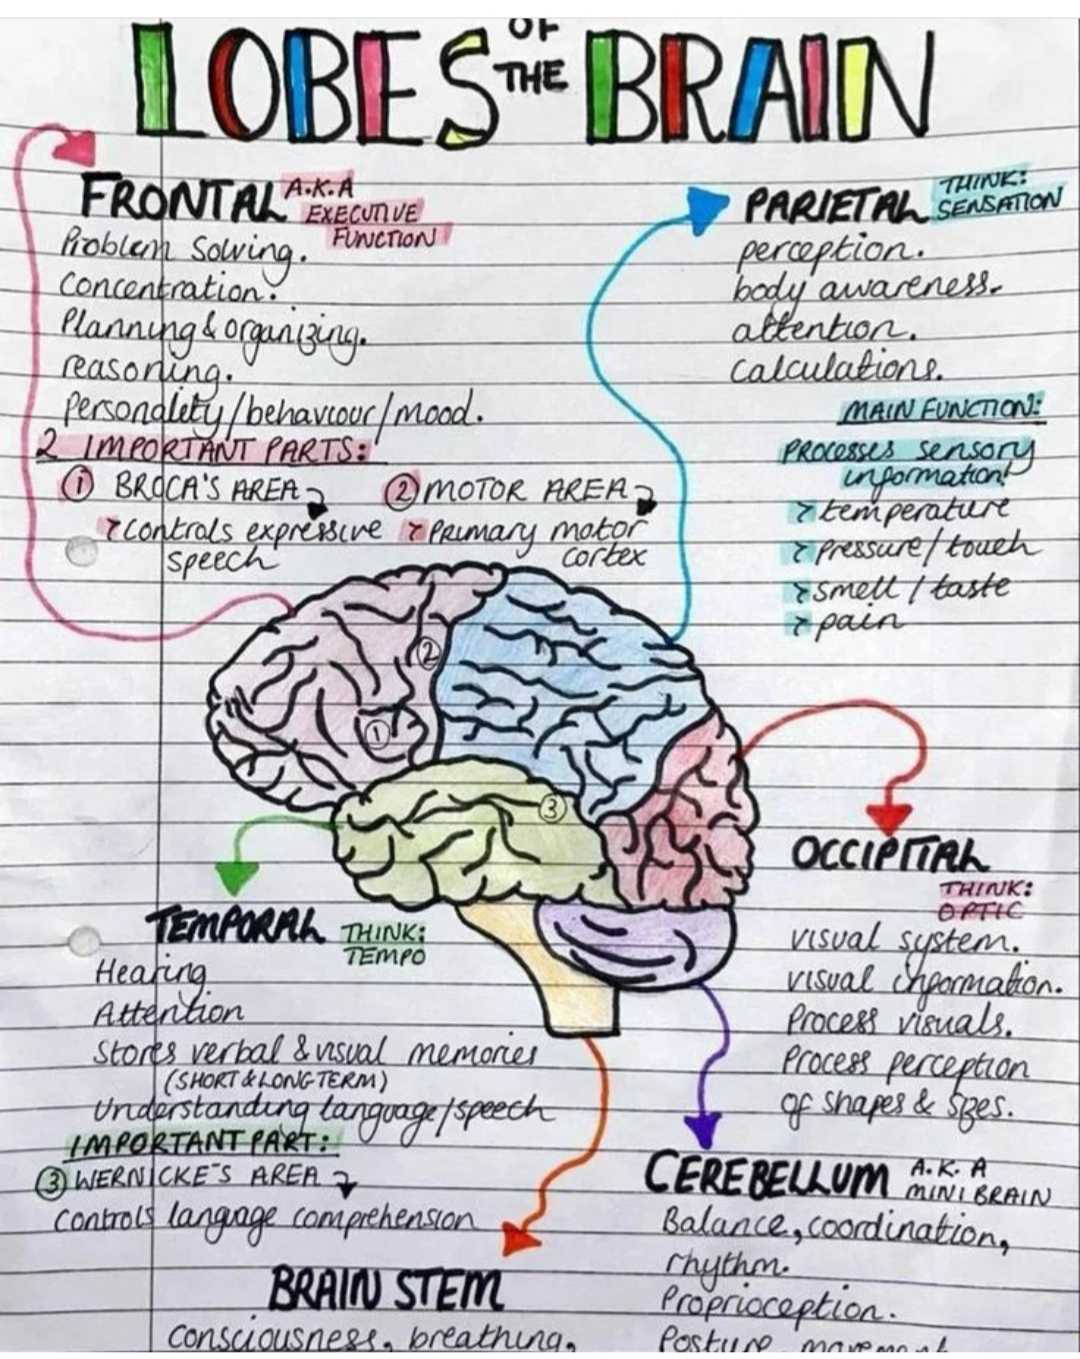 LOBES OF THE BRAIN
FRONTAL A.K.A
EXECUTIVE
FUNCTION
Problem solving.
Concentration.
Planning & organizing.
reasoning.
Personality/behaviour/mood.
2 IMPORTANT PARTS:
① BROCA'S AREA
↗ controls expressive
speech
② MOTOR AREA
↗ Primary motor
cortex
PARIETAL THINK:
SENSATION
perception.
body awareness.
attention.
calculations.
MAIN FUNCTION:
PROCESSES sensory
information!
↗ temperature
↗ pressure/touch
↗ smell / taste
↗ pain
②
①
③
OCCIPITAL
THINK:
OPTIC
visual system.
visual information.
Process visuals.
Process perception
of shapes & sizes.
TEMPORAL THINK:
TEMPO
Hearing
Attention
Stores verbal & visual memories
(SHORT & LONG TERM)
Understanding language/speech
IMPORTANT PART:
③ WERNICKE'S AREA
controls langage comprehension
CEREBELLUM A.K.A
MINI BRAIN
Balance, coordination,
rhythm.
Proprioception.
Posture, movement
BRAIN STEM
consciousness, breathing,